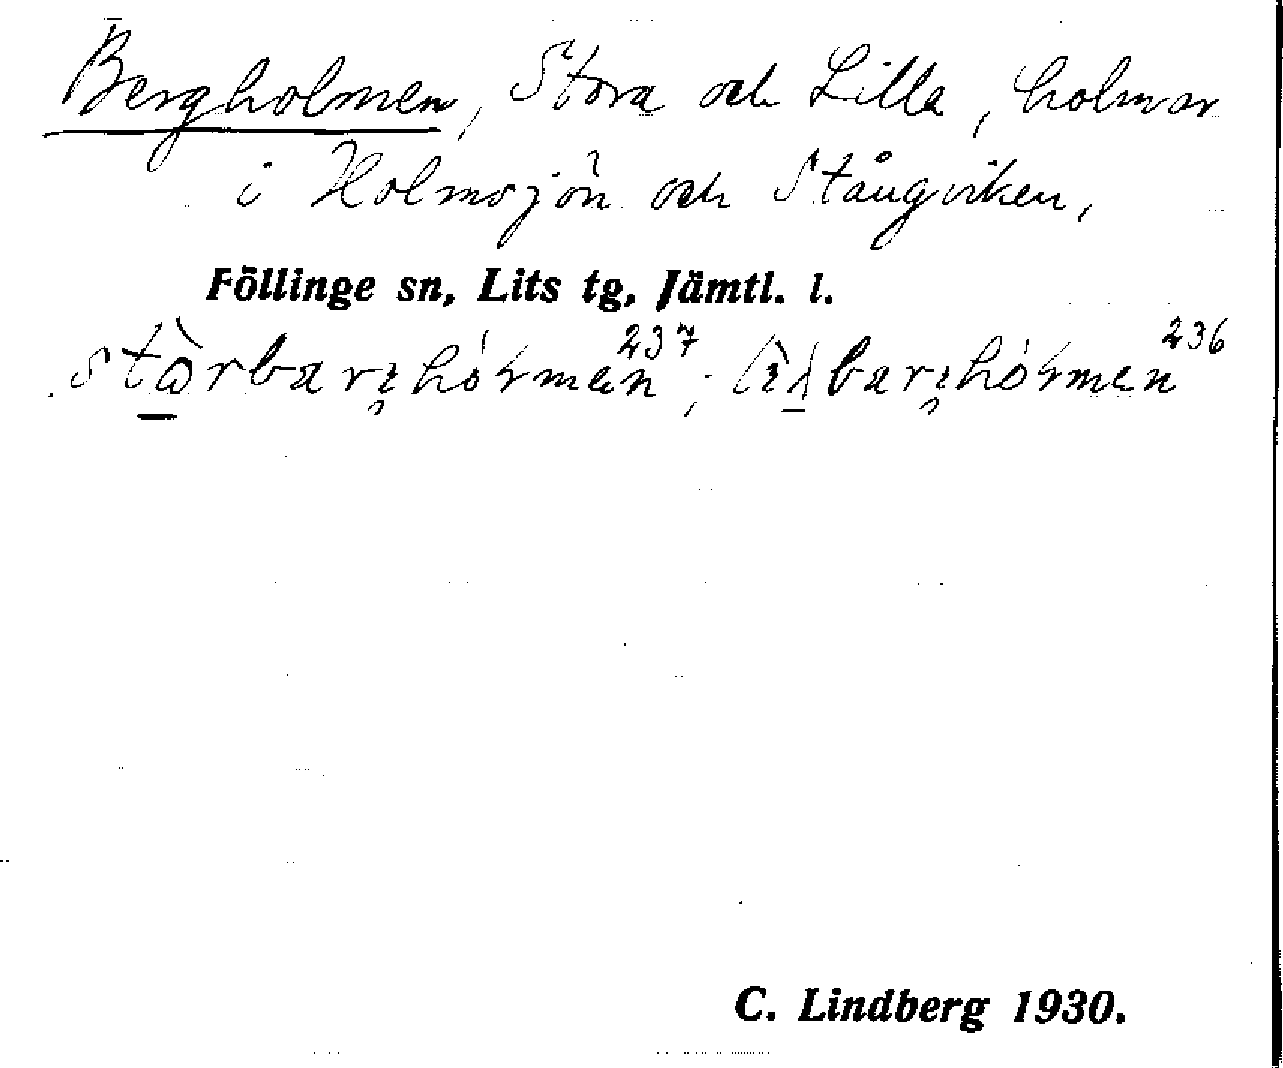 Bergholmen, Stora och Lilla, holmar
i Holmsjön och Stångviken,
Föllinge sn, Lits tg, Jämtl. l.
237 236
C. Lindberg 1930.